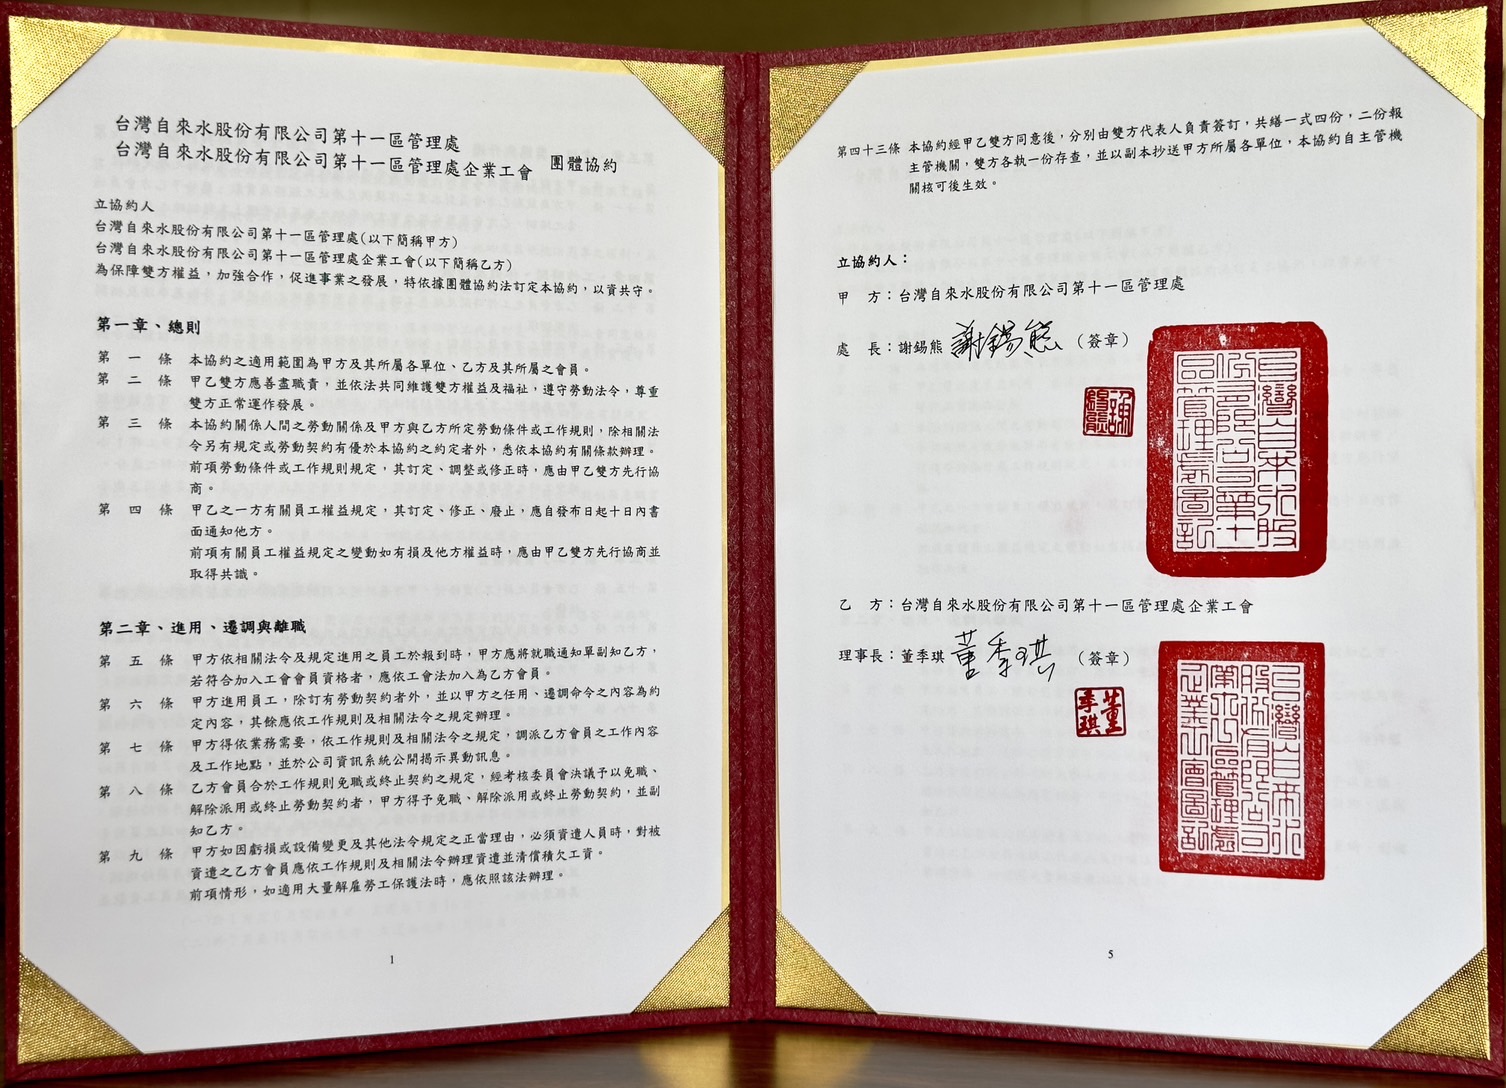 台灣自來水股份有限公司第十一區管理處
台灣自來水股份有限公司第十一區管理處企業工會 團體協約
立協約人
台灣自來水股份有限公司第十一區管理處(以下簡稱甲方)
台灣自來水股份有限公司第十一區管理處企業工會(以下簡稱乙方)
為保障雙方權益，加強合作，促進事業之發展，特依據團體協約法訂定本協約，以資共守。
第一章、總則
第一條 本協約之適用範圍為甲方及其所屬各單位、乙方及其所屬之會員。
第二條 甲乙雙方應善盡職責，並依法共同維護雙方權益及福祉，遵守勞動法令，尊重
雙方正常運作發展。
第三條 本協約關係人間之勞動關係及甲方與乙方所定勞動條件或工作規則，除相關法
令另有規定或勞動契約有優於本協約之約定者外，悉依本協約有關條款辦理。
前項勞動條件或工作規則規定，其訂定、調整或修正時，應由甲乙雙方先行協
商。
第四條 甲乙之一方有關員工權益規定，其訂定、修正、廢止，應自發布日起十日內書
面通知他方。
前項有關員工權益規定之變動如有損及他方權益時，應由甲乙雙方先行協商並
取得共識。
第二章、進用、遷調與離職
第五條 甲方依相關法令及規定進用之員工於報到時，甲方應將就職通知單副知乙方，
若符合加入工會會員資格者，應依工會法加入為乙方會員。
第六條 甲方進用員工，除訂有勞動契約者外，並以甲方之任用、遷調命令之內容為約
定內容，其餘應依工作規則及相關法令之規定辦理。
第七條 甲方得依業務需要，依工作規則及相關法令之規定，調派乙方會員之工作內容
及工作地點，並於公司資訊系統公開揭示異動訊息。
第八條 乙方會員合於工作規則免職或終止契約之規定，經考核委員會決議予以免職、
解除派用或終止勞動契約者，甲方得予免職、解除派用或終止勞動契約，並副
知乙方。
第九條 甲方如因虧損或設備變更及其他法令規定之正當理由，必須資遣人員時，對被
資遣之乙方會員應依工作規則及相關法令辦理資遣並清償積欠工資。
前項情形，如適用大量解雇勞工保護法時，應依照該法辦理。
1
第四十三條 本協約經甲乙雙方同意後，分別由雙方代表人負責簽訂，共繕一式四份，二份報
主管機關，雙方各執一份存查，並以副本抄送甲方所屬各單位，本協約自主管機
關核可後生效。
立協約人：
甲　方：台灣自來水股份有限公司第十一區管理處
處　長：謝錫熊 謝錫熊 （簽章）
台灣自來水股份有限公司第十一區管理處圖記
乙　方：台灣自來水股份有限公司第十一區管理處企業工會
理事長：董季琪 董季琪 （簽章）
董季琪
台灣自來水股份有限公司第十一區管理處企業工會圖記
5